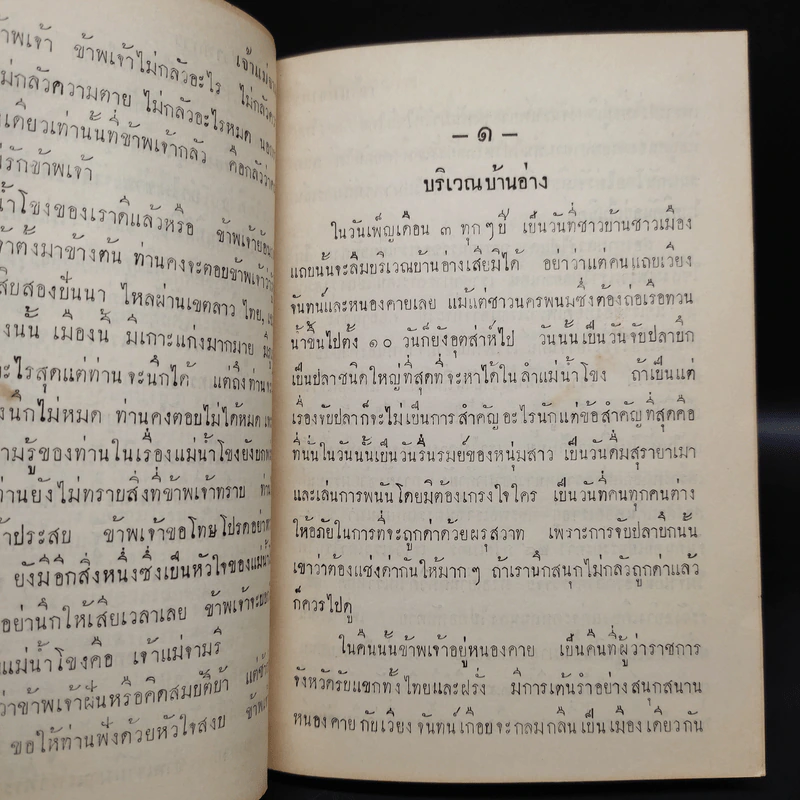 ข้าพเจ้า ข้าพเจ้าไม่กลัวอะไร ไม่กลัว
ไม่กลัวความตาย ไม่กลัวอะไรหมด
เดียวเท่านั้นที่ข้าพเจ้ากลัว คือกลัวว่า
รักข้าพเจ้า
น้ำโขงของเราดีแล้วหรือ ข้าพเจ้า
ตั้งมาข้างต้น ท่านคงจะตอบข้าพเจ้า
สิบสองปันนา ไหลผ่านเขตลาว ไทย,
นั้น เมืองนี้ มีเกาะแก่งมากมาย
อะไรสุดแต่ท่านจะนึกได้ แต่ถึงท่านจะ
นึกไม่หมด ท่านคงตอบไม่ได้หมด
ความรู้ของท่านในเรื่องแม่น้ำโขงยัง
ท่านยังไม่ทราบสิ่งที่ข้าพเจ้าทราบ
ประสบ ข้าพเจ้าขอโทษโปรดอย่า
ยังมีอีกสิ่งหนึ่งซึ่งเป็นหัวใจของแม่น้ำ
อย่านึกให้เสียเวลาเลย ข้าพเจ้าจะบอก
แม่น้ำโขงคือ เจ้าแม่จามรี
ว่าข้าพเจ้าฝันหรือคิดสมบัติบ้า
ขอให้ท่านฟังด้วยหัวใจสงบ
– ๑ –
บริเวณบ้านอ่าง
ในวันเพ็ญเดือน ๓ ทุกๆปี เป็นวันที่ชาวบ้านชาวเมือง
แถบนั้นจะลืมบริเวณบ้านอ่างเสียมิได้ อย่าว่าแต่คนแถบเวียง
จันทน์และหนองคายเลย แม้แต่ชาวนครพนมซึ่งต้องถ่อเรือทวน
น้ำขึ้นไปตั้ง ๑๐ วันก็ยังอุตส่าห์ไป วันนั้นเป็นวันจับปลาบึก
เป็นปลาชนิดใหญ่ที่สุดที่จะหาได้ในลำแม่น้ำโขง ถ้าเป็นแต่
เรื่องจับปลาก็จะไม่เป็นการสำคัญอะไรนักแต่ข้อสำคัญที่สุดคือ
ที่นั่นในวันนั้นเป็นวันรื่นรมย์ของหนุ่มสาว เป็นวันดื่มสุรายาเมา
และเล่นการพนันโดยมิต้องเกรงใจใคร เป็นวันที่คนทุกคนต่าง
ให้อภัยในการที่จะถูกด่าด้วยผรุสวาท เพราะการจับปลาบึกนั้น
เขาว่าต้องแช่งด่ากันให้มากๆ ถ้าเรานึกสนุกไม่กลัวถูกด่าแล้ว
ก็ควรไปดู
ในคืนนั้นข้าพเจ้าอยู่หนองคาย เป็นคืนที่ผู้ว่าราชการ
จังหวัดรับแขกทั้งไทยและฝรั่ง มีการเต้นรำอย่างสนุกสนาน
หนองคายกับเวียงจันทน์เกือบจะกลมกลืนเป็นเมืองเดียวกัน